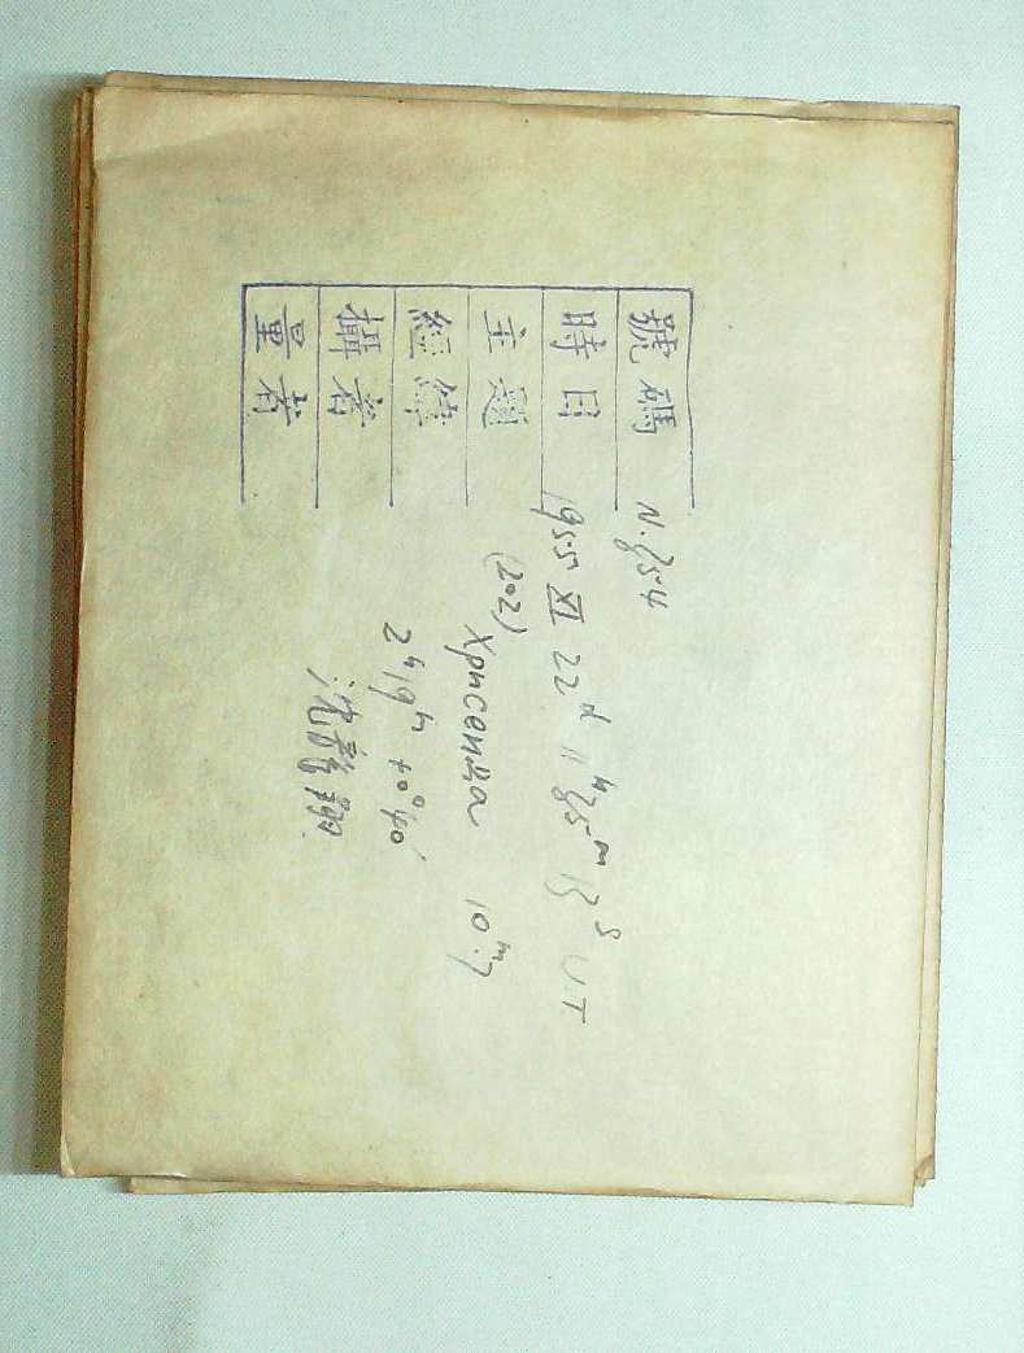 號碼 N.
時日 1955 XI 22ᵈ 11ʰ UT
主題 (202) Хрисеида 10ᵐ.7
經緯 2ʰ19ᵐ +0°40′
攝者 沈
量者